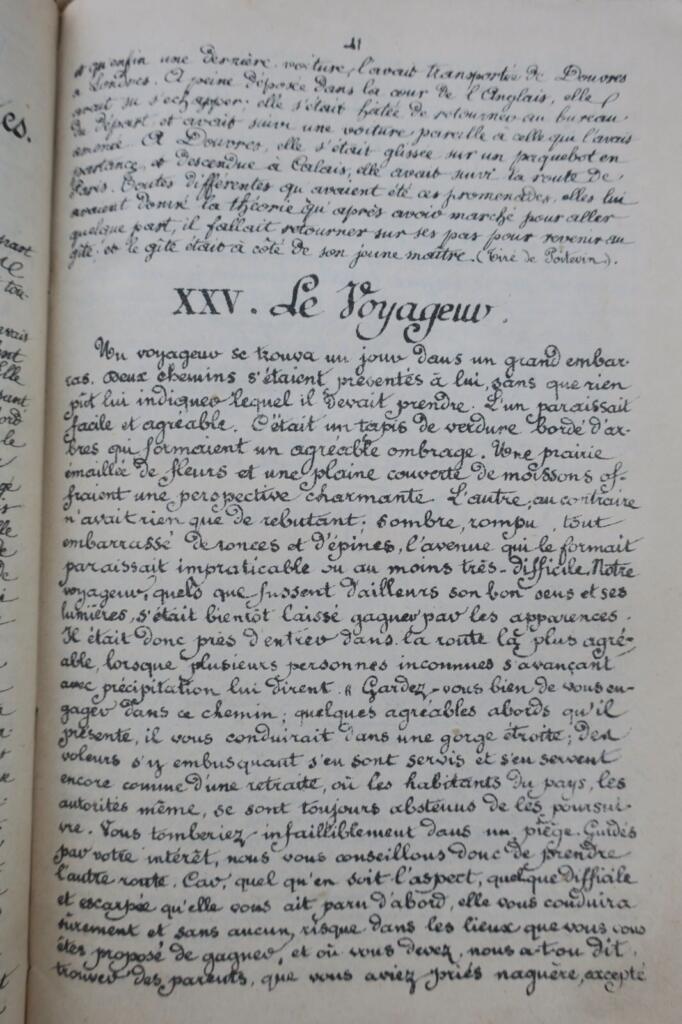 41
et qu'enfin une dernière voiture, l'avait transportée de Douvres
à Londres. A peine déposée dans la cour de l'Anglais, elle
avait su s'echapper; elle s'était hâtée de retourner au bureau
de départ et avait suivi une voiture pareille à celle qui l'avait
amenée. A Douvres, elle s'était glissée sur un paquebot en
partance, et descendue à Calais, elle avait suivi la route de
Paris. Toutes différentes qu'avaient été ces promenades, elles lui
avaient donné la théorie qu'après avoir marché pour aller
quelque part, il fallait retourner sur ses pas pour revenir au
gîte; et le gîte était à côté de son jeune maître. (Tiré de Poitevin).
XXV. Le Voyageur.
Un voyageur se trouva un jour dans un grand embar-
ras. Deux chemins s'étaient présentés à lui, sans que rien
pût lui indiquer lequel il devait prendre. L'un paraissait
facile et agréable. C'était un tapis de verdure bordé d'ar-
bres qui formaient un agréable ombrage. Une prairie
émaillée de fleurs et une plaine couverte de moissons of-
fraient une perspective charmante. L'autre, au contraire
n'avait rien que de rebutant; sombre, rompu, tout
embarrassé de ronces et d'épines, l'avenue qui le formait
paraissait impraticable ou au moins très-difficile. Notre
voyageur, quels que fussent d'ailleurs son bon sens et ses
lumières, s'était bientôt laissé gagner par les apparences.
Il était donc près d'entrer dans la route la plus agré-
able, lorsque plusieurs personnes inconnues s'avançant
avec précipitation lui dirent. « Gardez-vous bien de vous en-
gager dans ce chemin; quelques agréables abords qu'il
présente, il vous conduirait dans une gorge étroite; des
voleurs s'y embusquant s'en sont servis et s'en servent
encore comme d'une retraite, où les habitants du pays, les
autorités même, se sont toujours abstenus de les poursui-
vre. Vous tomberiez infailliblement dans un piège. Guidés
par votre intérêt, nous vous conseillons donc de prendre
l'autre route. Car, quel qu'en soit l'aspect, quelque difficile
et escarpée qu'elle vous ait paru d'abord, elle vous conduira
sûrement et sans aucun risque dans les lieux que vous vous
êtes proposé de gagner, et où vous devez, nous a-t-on dit,
trouver des parents, que vous aviez priés naguère, excepté